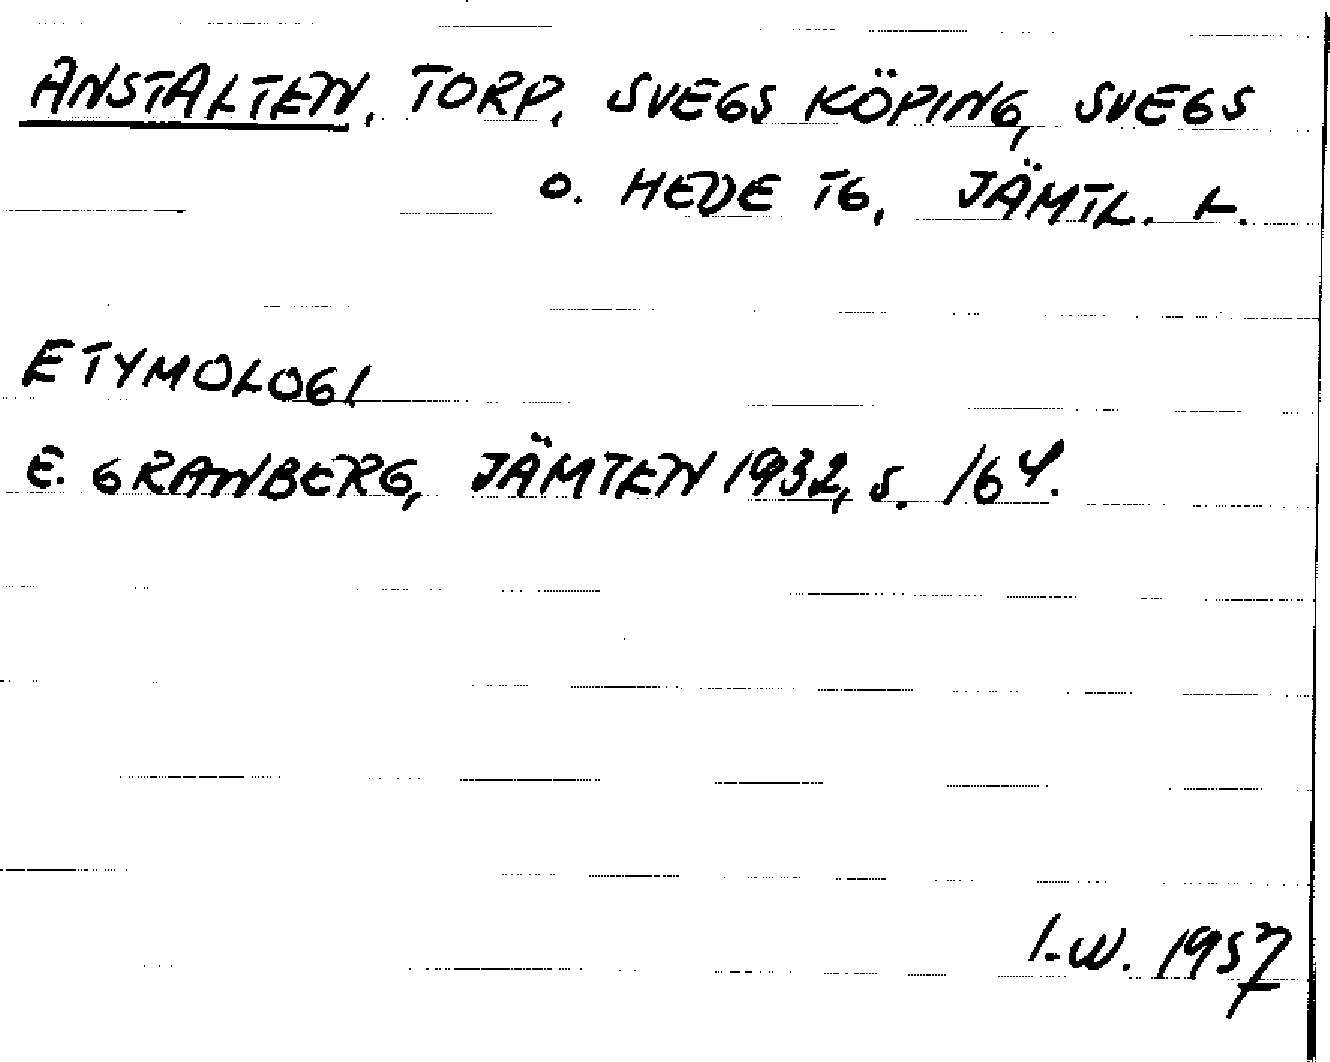 ANSTALTEN, TORP, SVEGS KÖPING, SVEGS
O. HEDE TG, JÄMTL. L.
ETYMOLOGI
E. GRANBERG, JÄMTEN 1932, S. 164.
I-W. 1957